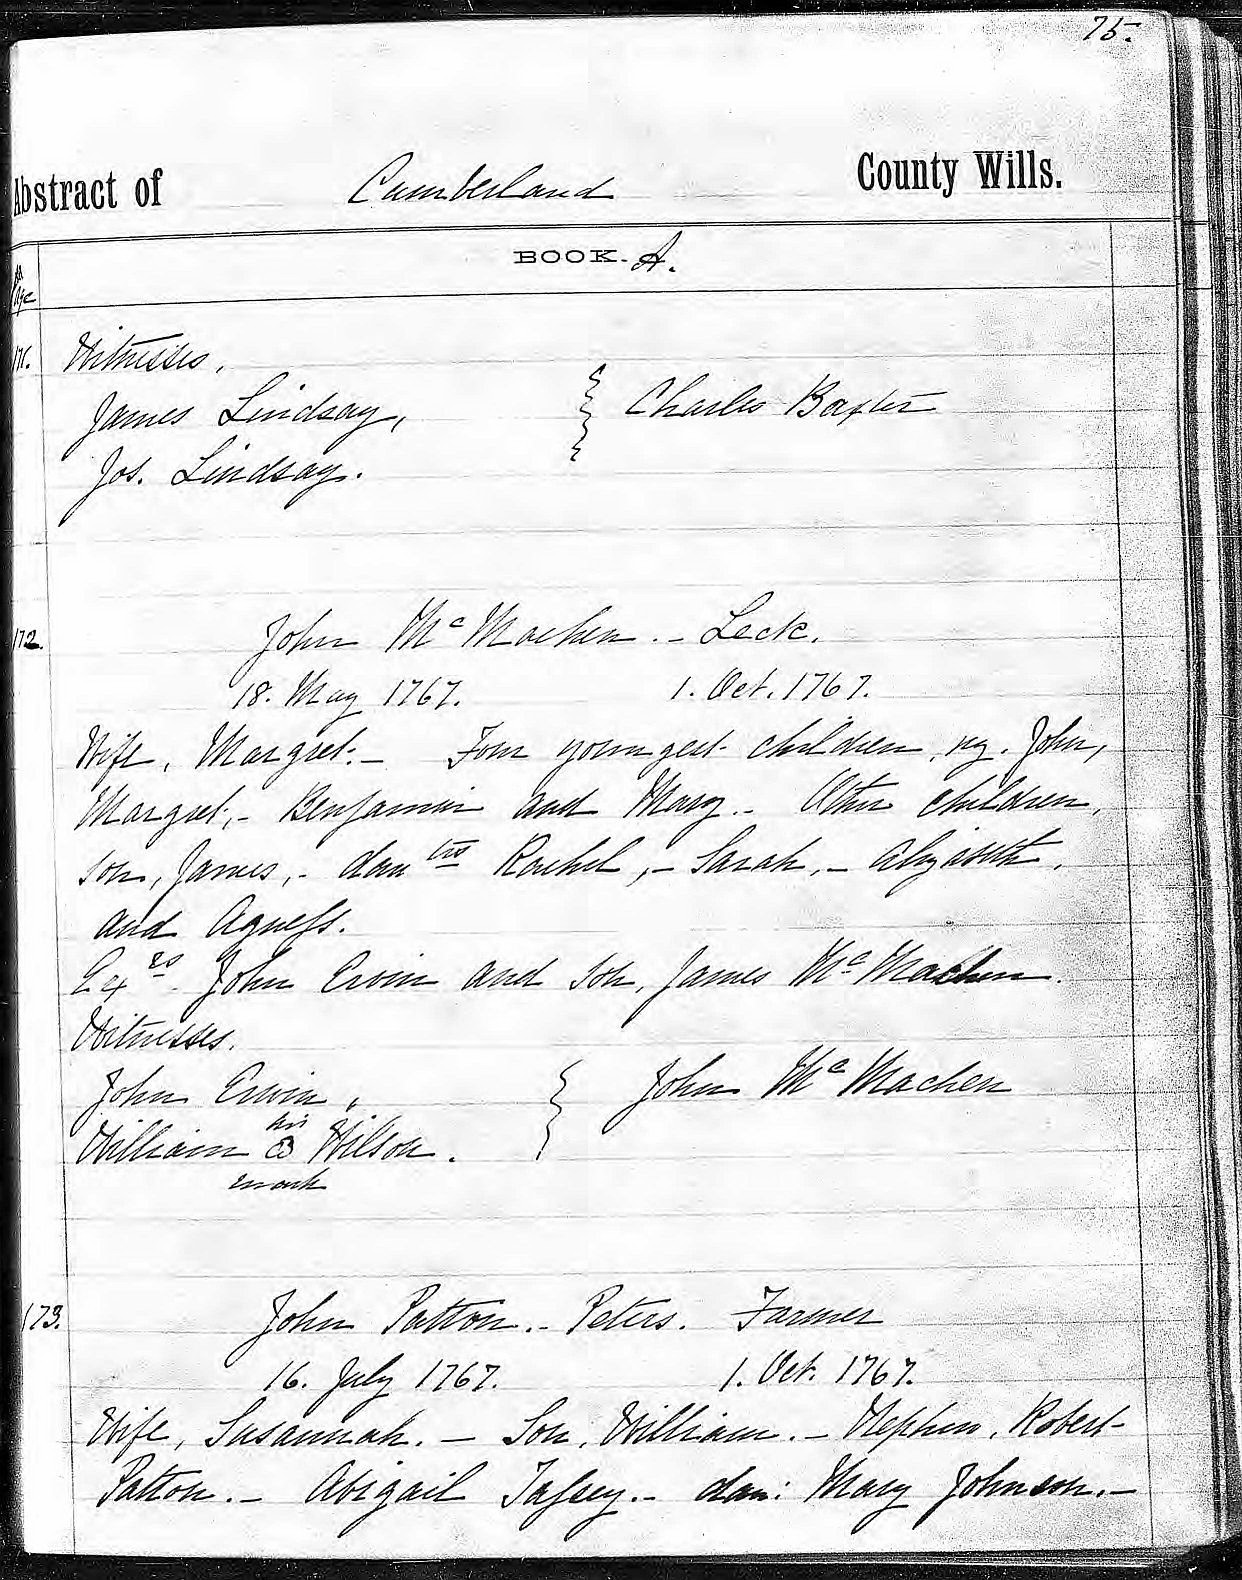 75.
Abstract of Cumberland County Wills.
BOOK A.
Page
171. Witnesses,
James Lindsay, Charles Baxter
Jos. Lindsay.
172. John Mc Machen. - Leck.
18. May 1767. 1. Oct. 1767.
Wife, Margret. - Four youngest children, viz. John,
Margret, - Benjamin and Mary. - Other children,
son, James, - dautrs Rachel, - Sarah, -
and Agness.
Exrs. John Ervin and son, James Mc Machen.
Witnesses.
John Erwin, John Mc Machen
his
William Wilson.
mark
173. John Patton. - Peters. Farmer
16. July 1767. 1. Oct. 1767.
Wife, Susannah. - Son, William. - Nephew, Robert
Patton. - Abigail Tassey. - dau: Mary Johnson. -